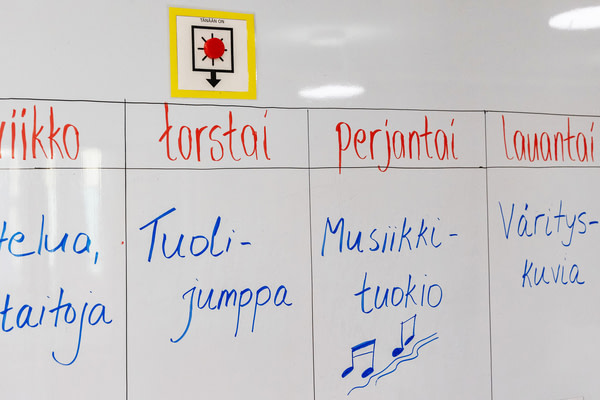 TÄNÄÄN ON
viikko torstai perjantai lauantai
telua,
taitoja
Tuoli-
jumppa
Musiikki-
tuokio
Väritys-
kuvia